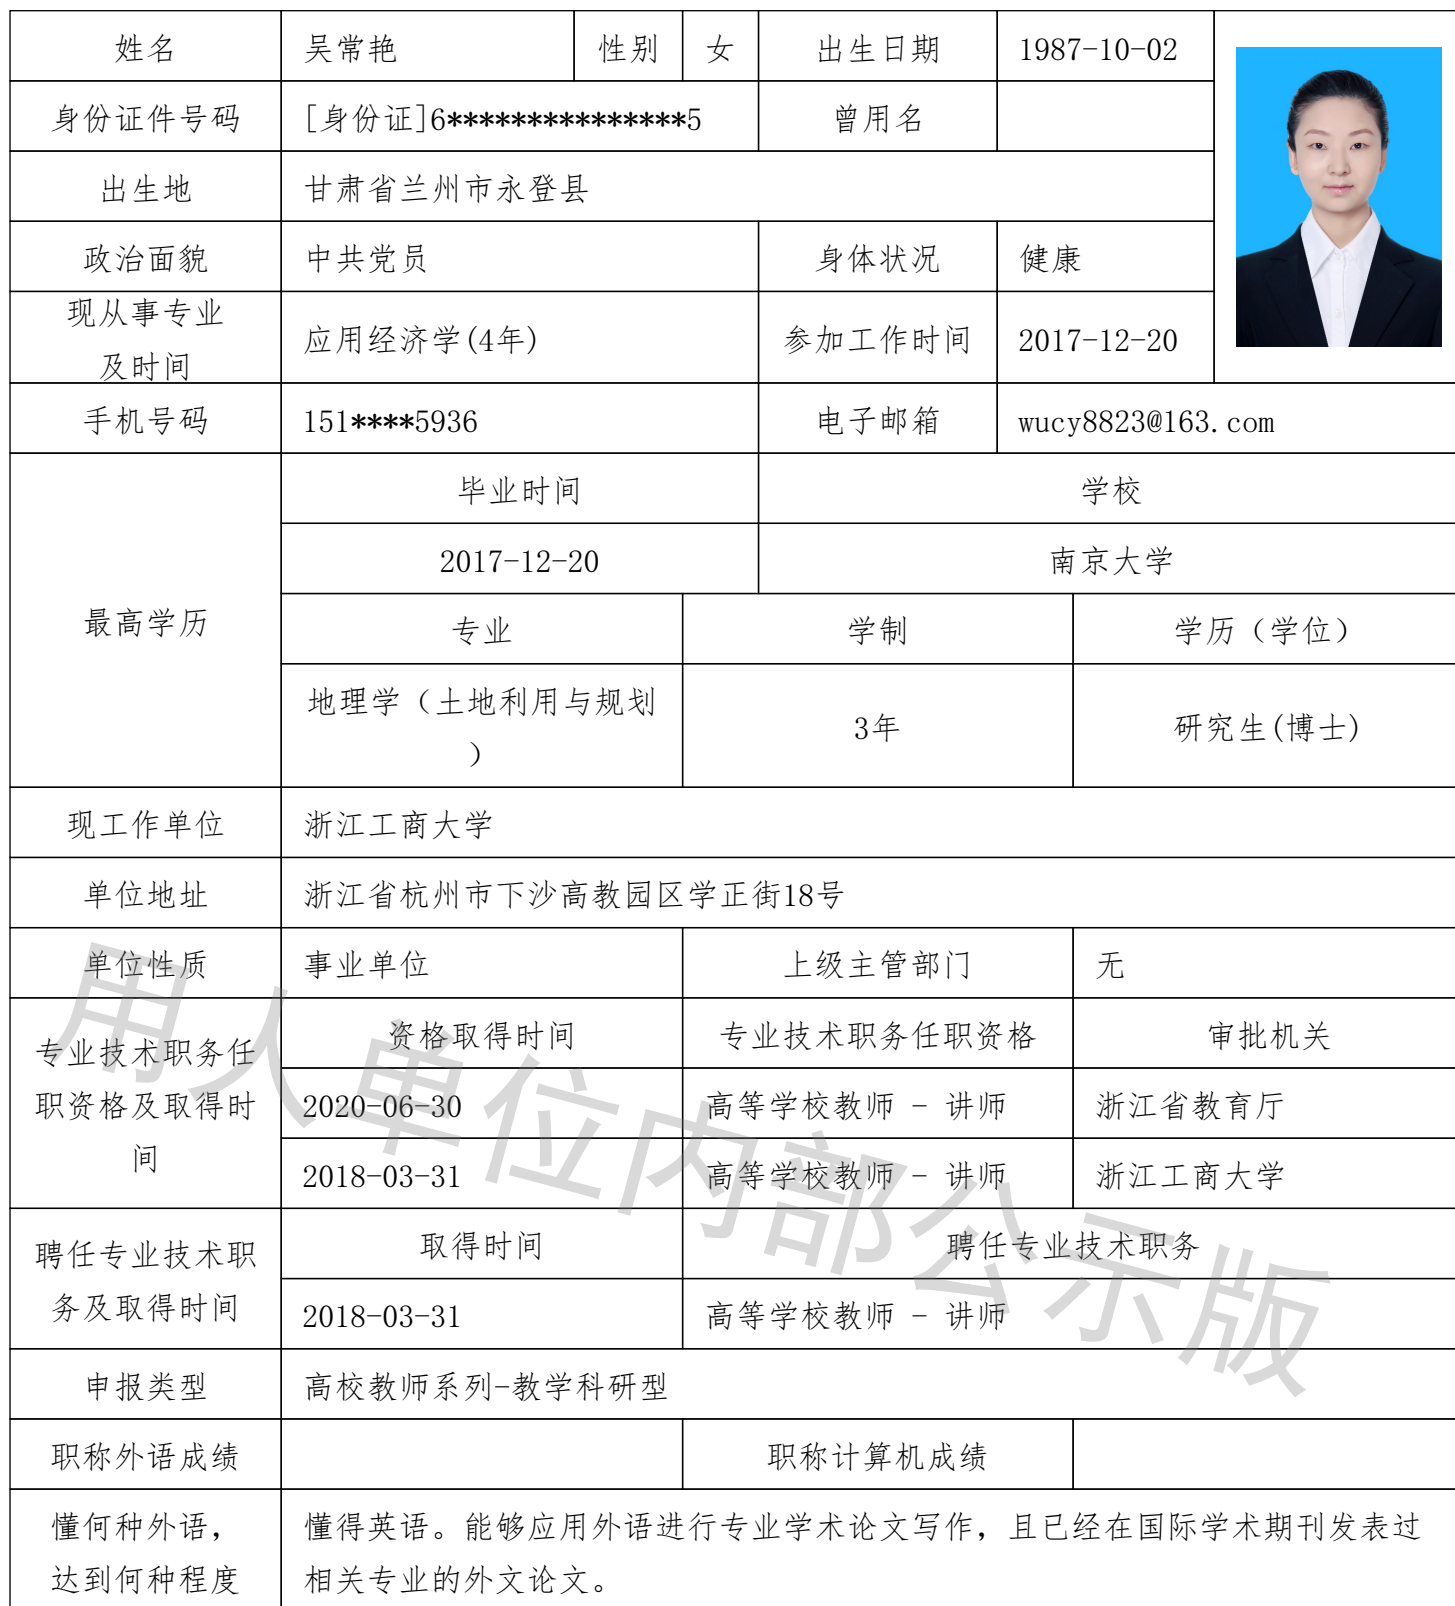 姓名 吴常艳 性别 女 出生日期 1987-10-02
身份证件号码 [身份证]6***************5 曾用名
出生地 甘肃省兰州市永登县
政治面貌 中共党员 身体状况 健康
现从事专业
及时间 应用经济学(4年) 参加工作时间 2017-12-20
手机号码 151****5936 电子邮箱 wucy8823@163.com
最高学历
毕业时间 学校
2017-12-20 南京大学
专业 学制 学历（学位）
地理学（土地利用与规划
） 3年 研究生(博士)
现工作单位 浙江工商大学
单位地址 浙江省杭州市下沙高教园区学正街18号
单位性质 事业单位 上级主管部门 无
专业技术职务任
职资格及取得时
间
资格取得时间 专业技术职务任职资格 审批机关
2020-06-30 高等学校教师 - 讲师 浙江省教育厅
2018-03-31 高等学校教师 - 讲师 浙江工商大学
聘任专业技术职
务及取得时间
取得时间 聘任专业技术职务
2018-03-31 高等学校教师 - 讲师
申报类型 高校教师系列-教学科研型
职称外语成绩 职称计算机成绩
懂何种外语，
达到何种程度
懂得英语。能够应用外语进行专业学术论文写作，且已经在国际学术期刊发表过
相关专业的外文论文。
用人单位内部公示版